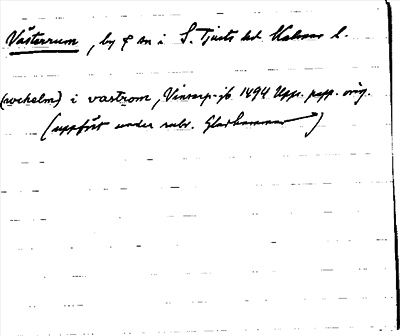 Västerrum, by & sn i S. Tjusts hd Kalmar l.
(rochelm) i vastrom, Vinarp-jb 1494 Upps. papp. orig.
(uppfört under rubr. Gladhammar)